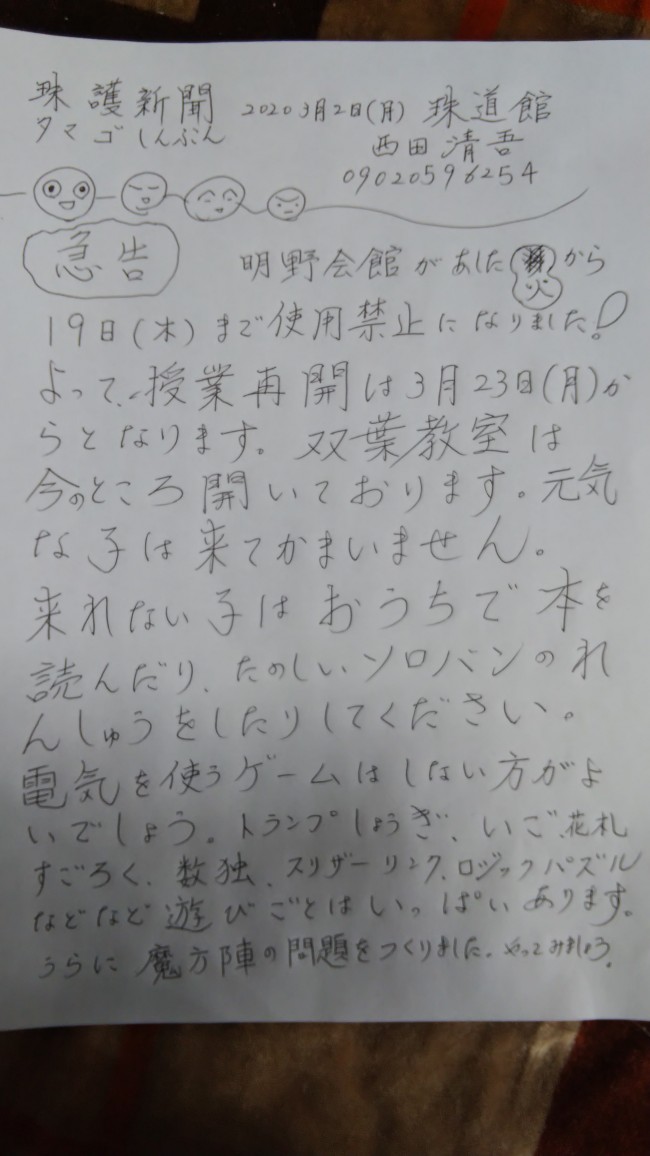 珠護新聞 2020 3月2日(月) 珠道館
タマゴしんぶん 西田清吾
09020596254
急告 明野会館があした火から
19日(木)まで使用禁止になりました!
よって、授業再開は3月23日(月)か
らとなります。双葉教室は
今のところ開いております。元気
な子は来てかまいません。
来れない子はおうちで本を
読んだり、たのしいソロバンのれ
んしゅうをしたりしてください。
電気を使うゲームはしない方がよ
いでしょう。トランプしょうぎ、いご、花札
すごろく、数独、スリザーリンク、ロジックパズル
などなど遊びごとはいっぱいあります。
うらに魔方陣の問題をつくりました。やってみましょう。